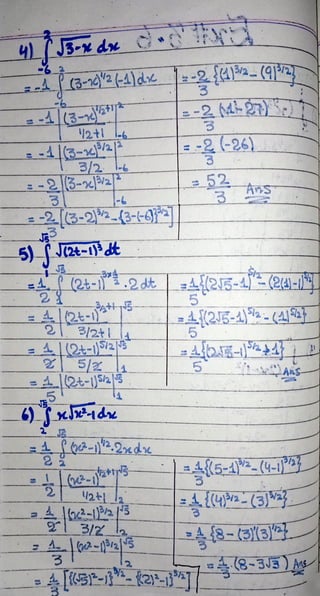 4) ∫_{-6}^{2} √(3-x) dx
= -1 ∫_{-6}^{2} (3-x)^{1/2} (-1) dx
= -1 |(3-x)^{1/2+1} / (1/2+1)|_{-6}^{2}
= -1 |(3-x)^{3/2} / (3/2)|_{-6}^{2}
= -2/3 |(3-x)^{3/2}|_{-6}^{2}
= -2/3 [(3-2)^{3/2} - {3-(-6)}^{3/2}]
= -2/3 {(1)^{3/2} - (9)^{3/2}}
= -2/3 (1-27)
= -2/3 (-26)
= 52/3 Ans
5) ∫_{1}^{√5} √(2t-1)³ dt
= 1/2 ∫_{1}^{√5} (2t-1)^{3×1/2} · 2 dt
= 1/2 |(2t-1)^{3/2+1} / (3/2+1)|_{1}^{√5}
= 1/2 |(2t-1)^{5/2} / (5/2)|_{1}^{√5}
= 1/5 |(2t-1)^{5/2}|_{1}^{√5}
= 1/5 {(2√5-1)^{5/2} - (2(1)-1)^{5/2}}
= 1/5 {(2√5-1)^{5/2} - (1)^{5/2}}
= 1/5 {(2√5-1)^{5/2} + 1} Ans
6) ∫_{2}^{√5} x√(x²-1) dx
= 1/2 ∫_{2}^{√5} (x²-1)^{1/2} · 2x dx
= 1/2 |(x²-1)^{1/2+1} / (1/2+1)|_{2}^{√5}
= 1/2 |(x²-1)^{3/2} / (3/2)|_{2}^{√5}
= 1/3 |(x²-1)^{3/2}|_{2}^{√5}
= 1/3 [{(√5)²-1}^{3/2} - {(2)²-1}^{3/2}]
= 1/3 {(5-1)^{3/2} - (4-1)^{3/2}}
= 1/3 {(4)^{3/2} - (3)^{3/2}}
= 1/3 {8 - (3)(3)^{1/2}}
= 1/3 (8-3√3) Ans